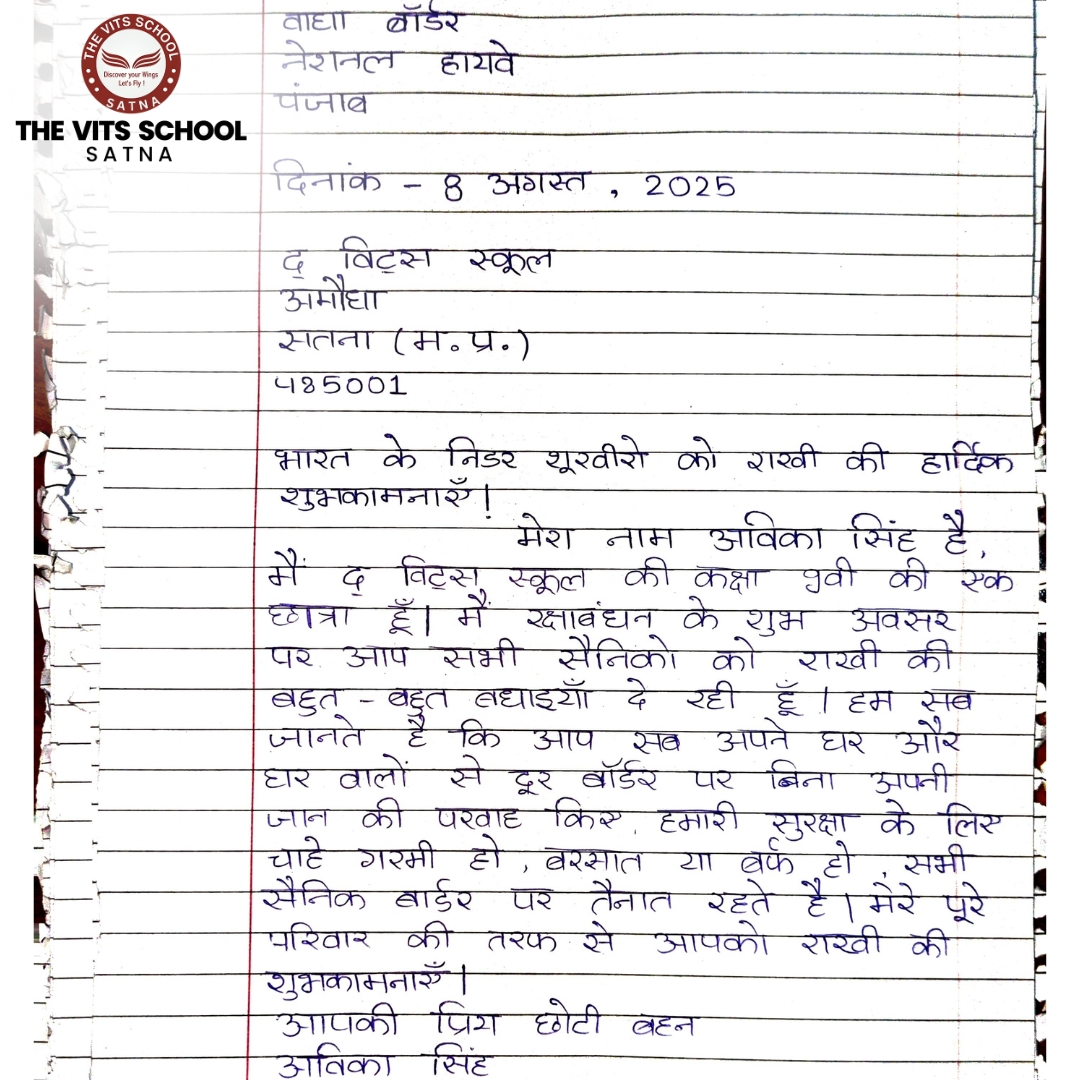 THE VITS SCHOOL
Discover your Wings
Let's Fly !
SATNA
THE VITS SCHOOL
SATNA
वाघा बॉर्डर
नेशनल हायवे
पंजाब
दिनांक - 8 अगस्त , 2025
द् विट्स स्कूल
अमौधा
सतना (म.प्र.)
485001
भारत के निडर शूरवीरो को राखी की हार्दिक
शुभकामनाएँ!
मेरा नाम अविका सिंह है,
मैं द् विट्स स्कूल की कक्षा 9वी की एक
छात्रा हूँ। मैं रक्षाबंधन के शुभ अवसर
पर आप सभी सैनिको को राखी की
बहुत - बहुत बधाइयाँ दे रही हूँ। हम सब
जानते है कि आप सब अपने घर और
घर वालों से दूर बॉर्डर पर बिना अपनी
जान की परवाह किए, हमारी सुरक्षा के लिए
चाहे गरमी हो, बरसात या बर्फ हो, सभी
सैनिक बार्डर पर तैनात रहते है। मेरे पूरे
परिवार की तरफ से आपको राखी की
शुभकामनाएँ।
आपकी प्रिय छोटी बहन
अविका सिंह